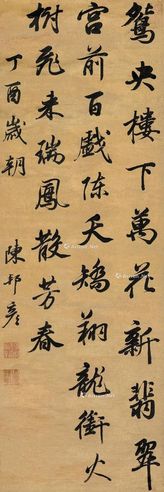 鴛央樓下萬花新翡翠
宮前百戲陳夭矯翔龍銜火
樹飛來瑞鳳散芳春
丁酉歲朝
陳邦彥